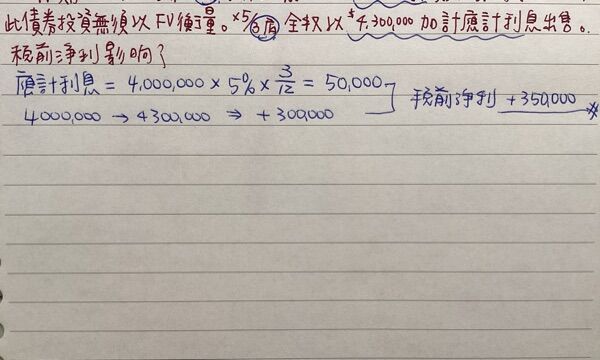 此債券投資無須以FV衡量。×5/③底全數以$4,300,000加計應計利息出售。
稅前淨利影响？
應計利息 = 4,000,000 × 5% × 3/12 = 50,000
稅前淨利 +350,000
4000,000 → 4300,000 ⇒ +300,000